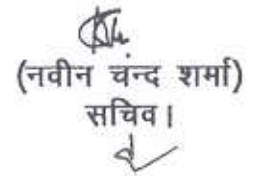 (नवीन चन्द शर्मा)
सचिव।